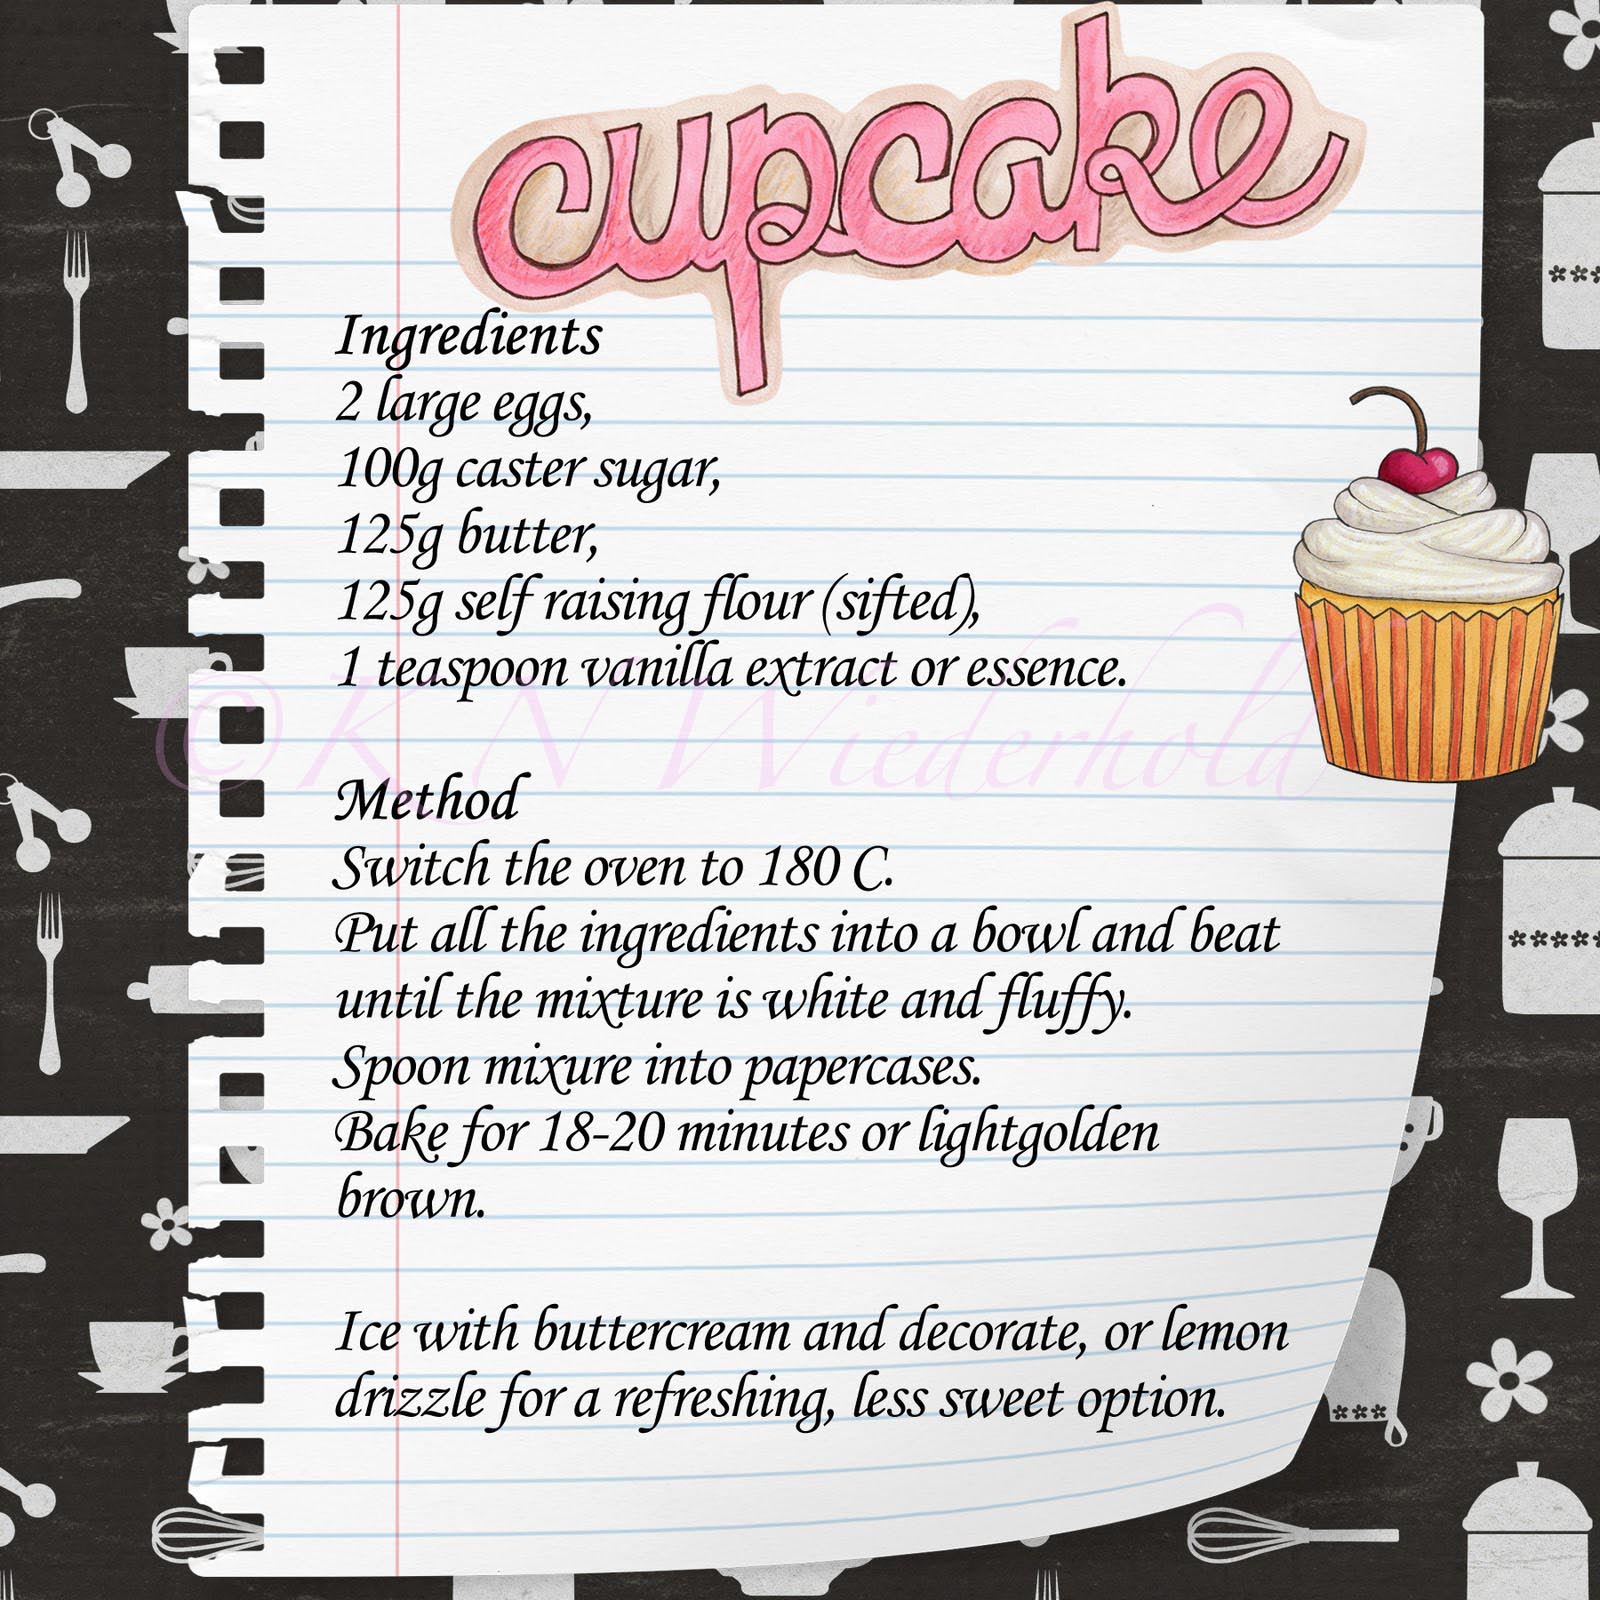 cupcake
Ingredients
2 large eggs,
100g caster sugar,
125g butter,
125g self raising flour (sifted),
1 teaspoon vanilla extract or essence.
©K N Wiederhold
Method
Switch the oven to 180 C.
Put all the ingredients into a bowl and beat
until the mixture is white and fluffy.
Spoon mixure into papercases.
Bake for 18-20 minutes or lightgolden
brown.
Ice with buttercream and decorate, or lemon
drizzle for a refreshing, less sweet option.